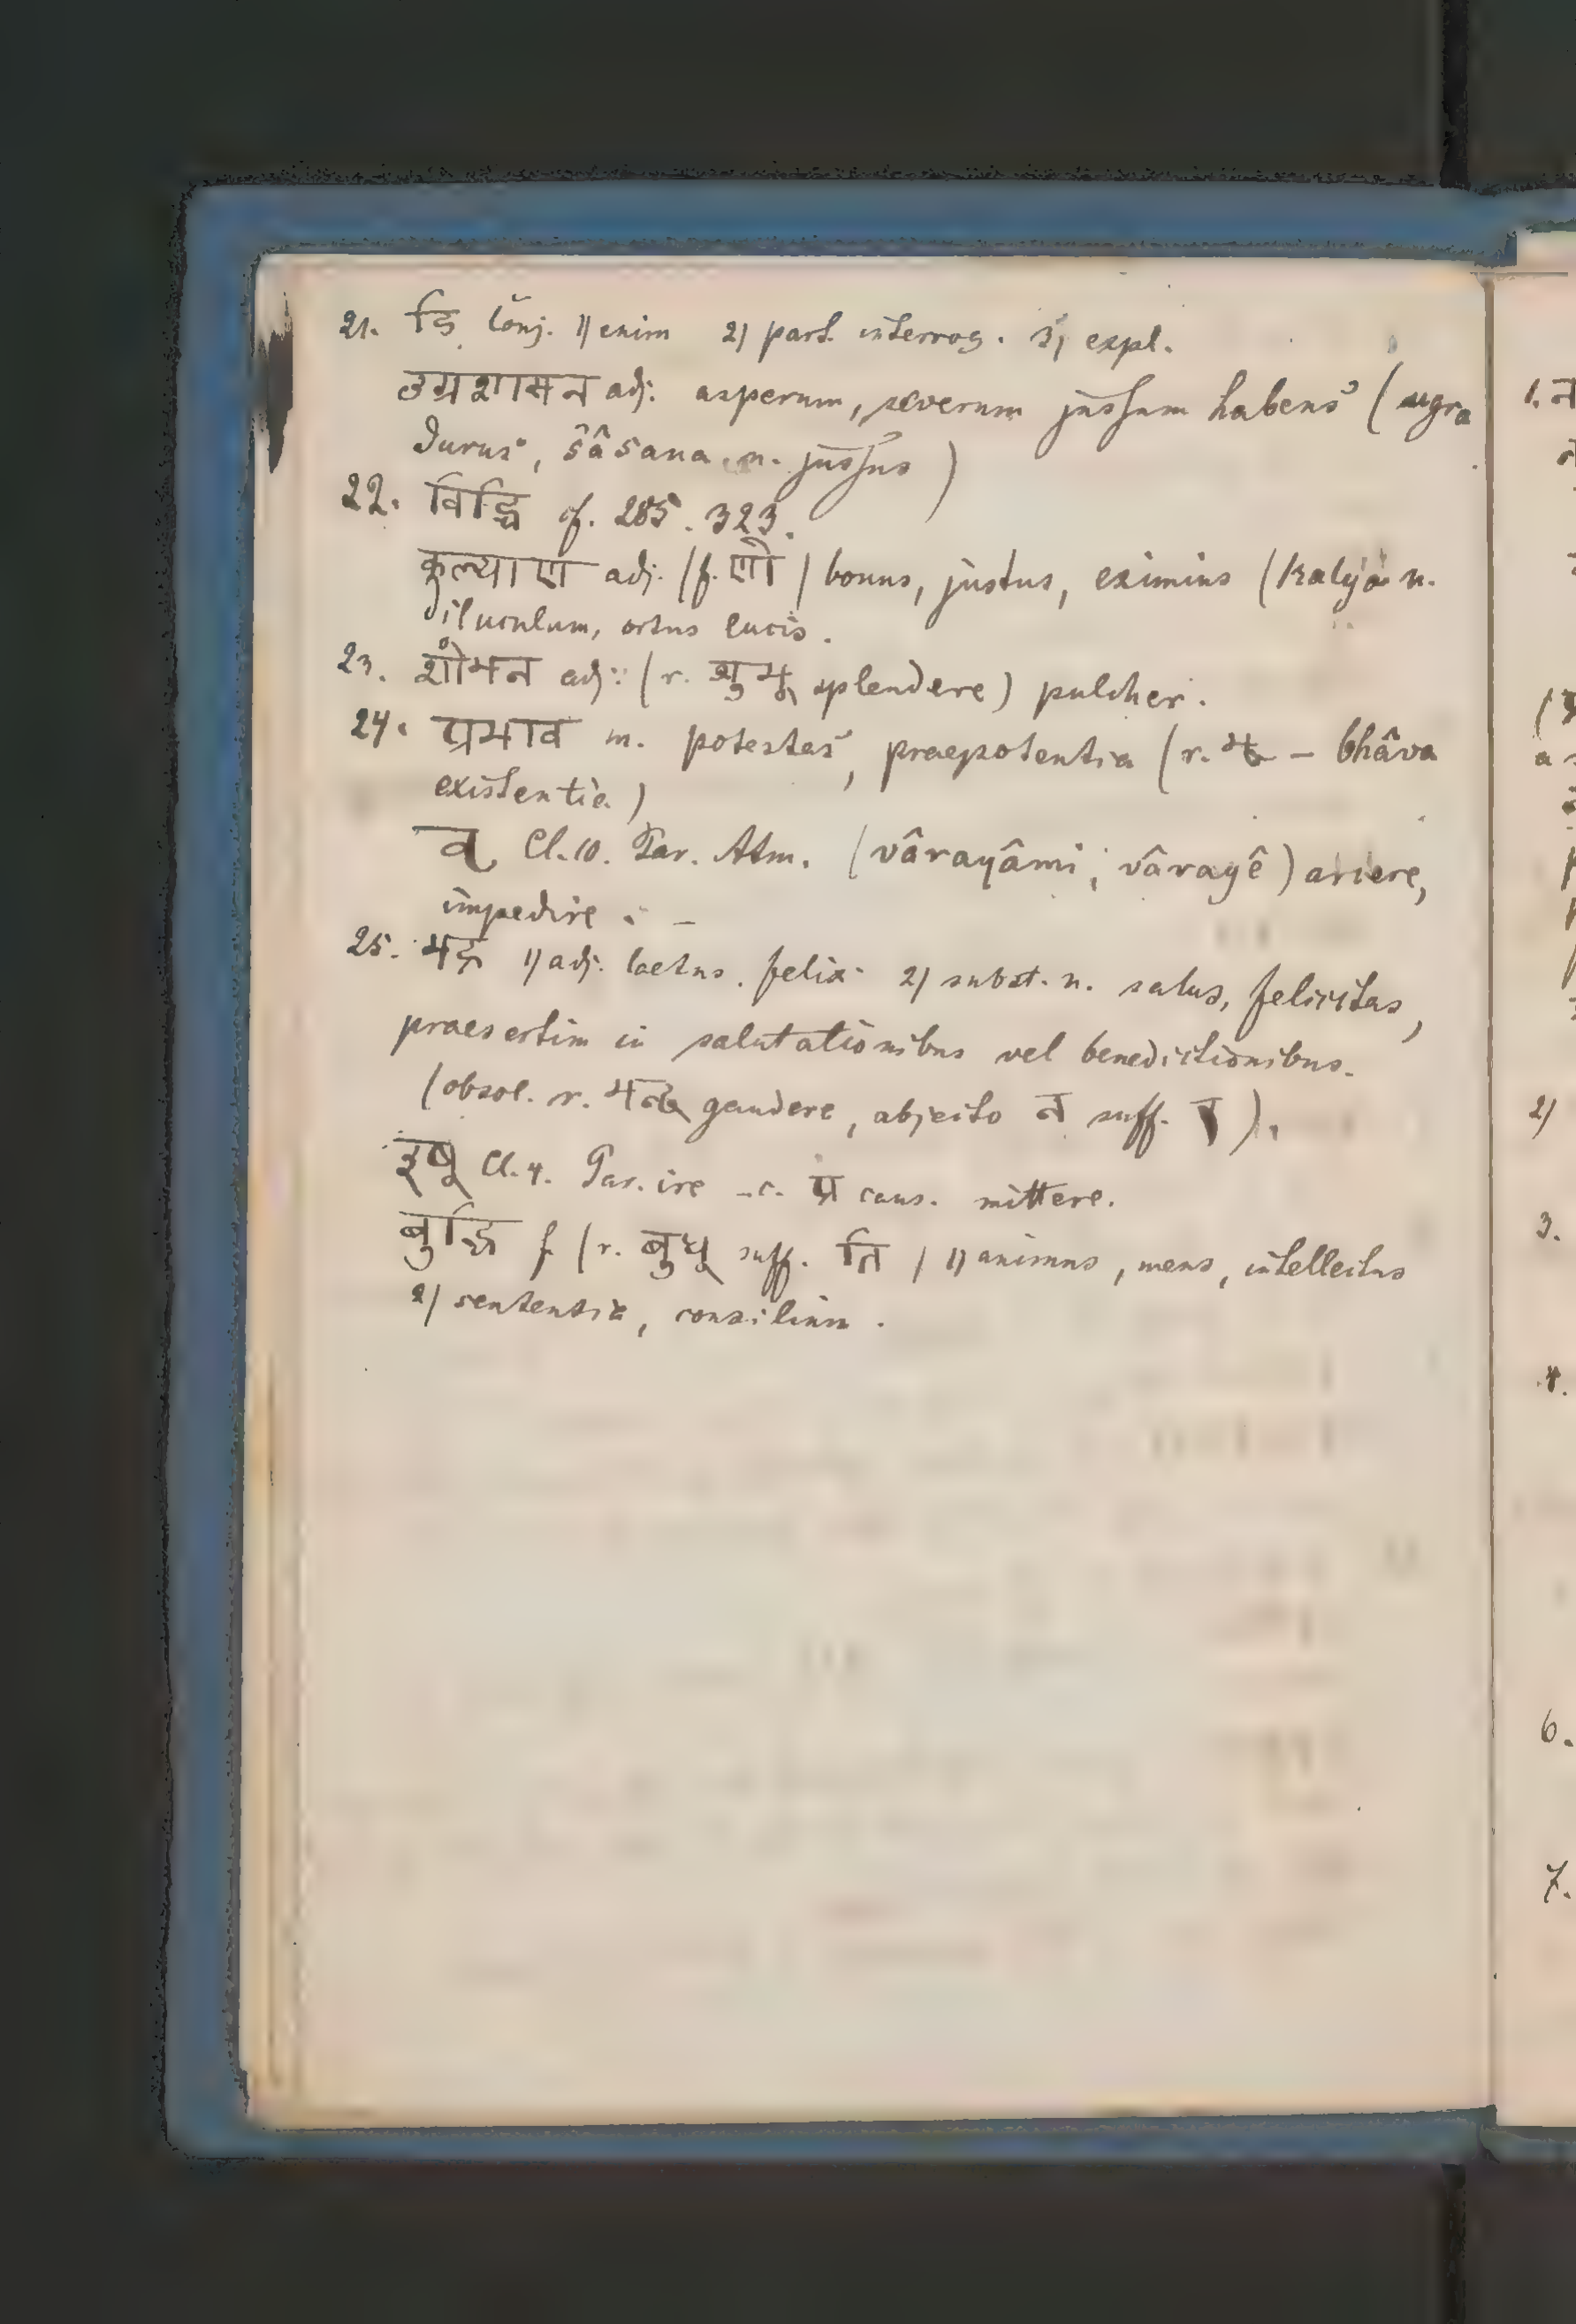 21. हि Conj. 1) enim 2) part. interrog. 3) expl.
उग्रशासन adj. asperum, severum jussum habens (ugra
durus, śâsana n. jussus)
22. विद्धि cf. 285. 323.
कल्याण adj. (f. णी) bonus, justus, eximius (kalya n.
diluculum, ortus lucis.
23. शोभन adj. (r. शुभ् splendere) pulcher.
24. प्रभाव m. potestas, praepotentia (r. भू – bhâva
existentia)
वृ Cl. 10. Par. Atm. (vârayâmi, vârayê) arcere,
impedire. –
25. भद्र 1) adj. laetus, felix 2) subst. n. salus, felicitas,
praesertim in salutationibus vel benedictionibus.
(obsol. r. भन्द् gaudere, abjecto न suff. र).
इष् Cl. 4. Par. ire – c. प्र caus. mittere.
बुद्धि f. (r. बुध् suff. ति) 1) animus, mens, intellectus
2) sententia, consilium.
1. न
2)
3.
4.
6.
7.